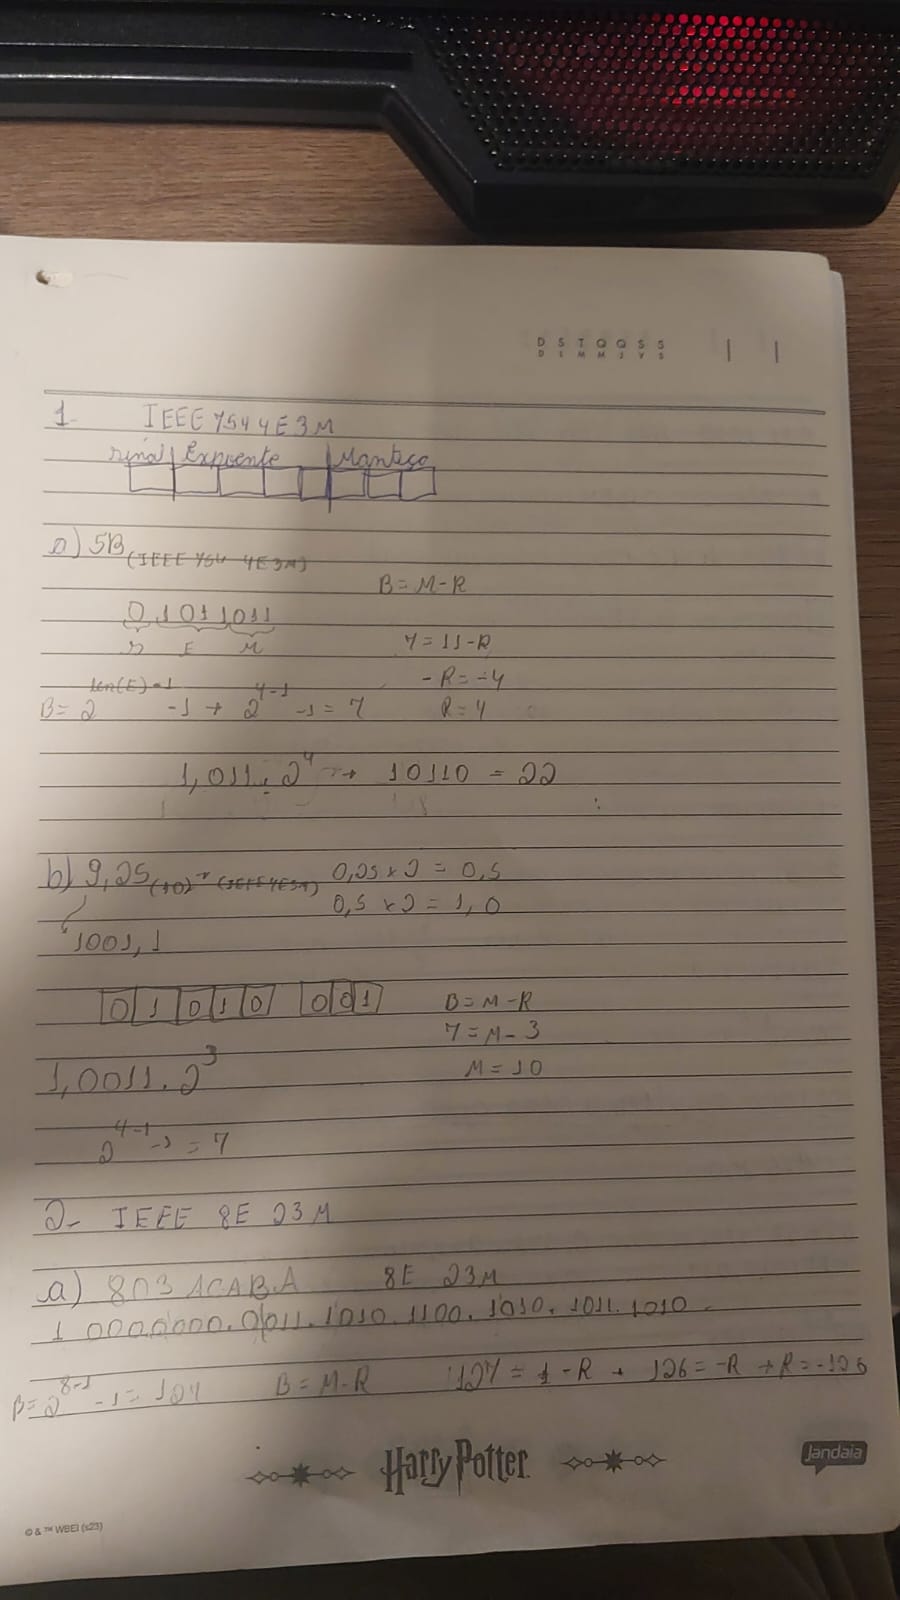 D S T Q Q S S
D L M M J V S
1- IEEE 754 4E3M
sinal Expoente Mantisa
a) 5B (IEEE 754 4E3M)
B = M - R
0 1011011
7 = 11 - R
S E M
- R = -4
B = 2^len(E)-1 -1 → 2^4-1 -1 = 7
R = 4
1,011 . 2^4 → 10110 = 22
b) 9,25(10) → 0,25 x 2 = 0,5
0,5 x 2 = 1,0
1001,1
0 1 0 1 0 0 0 1
B = M - R
7 = M - 3
1,0011 . 2^3
M = 10
2^4-1 -1 = 7
2- IEEE 8E 23M
a) 803ACABA 8E 23M
1 0000000.0011.1010.1100.1010.1011.1010.
B = 2^8-1 -1 = 127 B = M - R 127 = 1 - R → 126 = -R → R = -126
Harry Potter
Jandaia
© & ™ WBEI (s23)